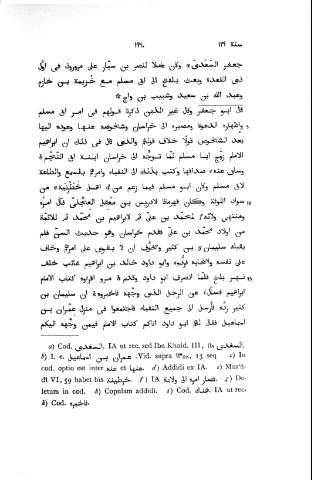 سنة ١٢٩ ١٩٦٠
جعفر السَعْدىّ وكان عاملا لنصر بن سيّار على مروروذ فى اوّل
ذى القعدة وبعث بالفتح الى ابى مسلم مع خزيمة بن خازم
وعبد الله بن سعيد وشبيب بن واج ⁕
قال ابو جعفر وقال غير الذين ذكرنا قولهم فى امر ابى مسلم
واظهاره الدعوة ومصيره الى خراسان وشخوصه عنها وعوده اليها
بعد الشخوص قولا خلاف قولهم والذى قال فى ذلك ان ابراهيم
الامام زوّج ابا مسلم لمّا توجّه الى خراسان ابنة ابى النَّجْم
وساق عنه صداقها وكتب بذلك الى النقباء وامرهم بالسمع والطاعة
لابى مسلم وكان ابو مسلم فيما زعم من اهل خُطَرْنِيَة من
سواد الكوفة وكان قهرمانا لادريس بن مَعْقِل العِجْلىّ فآل امره
ومنتهى ولائه لمحمّد بن علىّ ثم لابراهيم بن محمّد ثم للائمّة
من اولاد محمّد بن علىّ فقدم خراسان وهو حديث السنّ فلم
يقبله سليمان بن كثير وتخوّف ان لا يقوى على امرهم وخاف
على نفسه واصحابه فردّوه وابو داود خالد بن ابراهيم غائب خلف
نهر بلخ فلمّا انصرف ابو داود وقدم مرو اقرءوه كتاب الامام
ابراهيم فسأل عن الرجل الذى وجّهه فاخبروه ان سليمان بن
كثير ردّه فارسل الى جميع النقباء فاجتمعوا فى منزل عمران بن
اسماعيل فقال لهم ابو داود اتاكم كتاب الامام فيمن وجّهه اليكم
a) Cod. السعدى, IA ut rec, sed Ibn Khald. III,
b) I. e. عمران بن اسماعيل. Vid. supra 13 seq. c) In
cod. optio est inter عنه et عنها. d) Addidi ex IA. e) Mas'û-
dî VI, 59 habet bis خرطينة. f) IA فصار امره الى ولاية. g) De-
letam in cod. h) Copulam addidi. i) Cod. IA ut rec.
k) Cod.